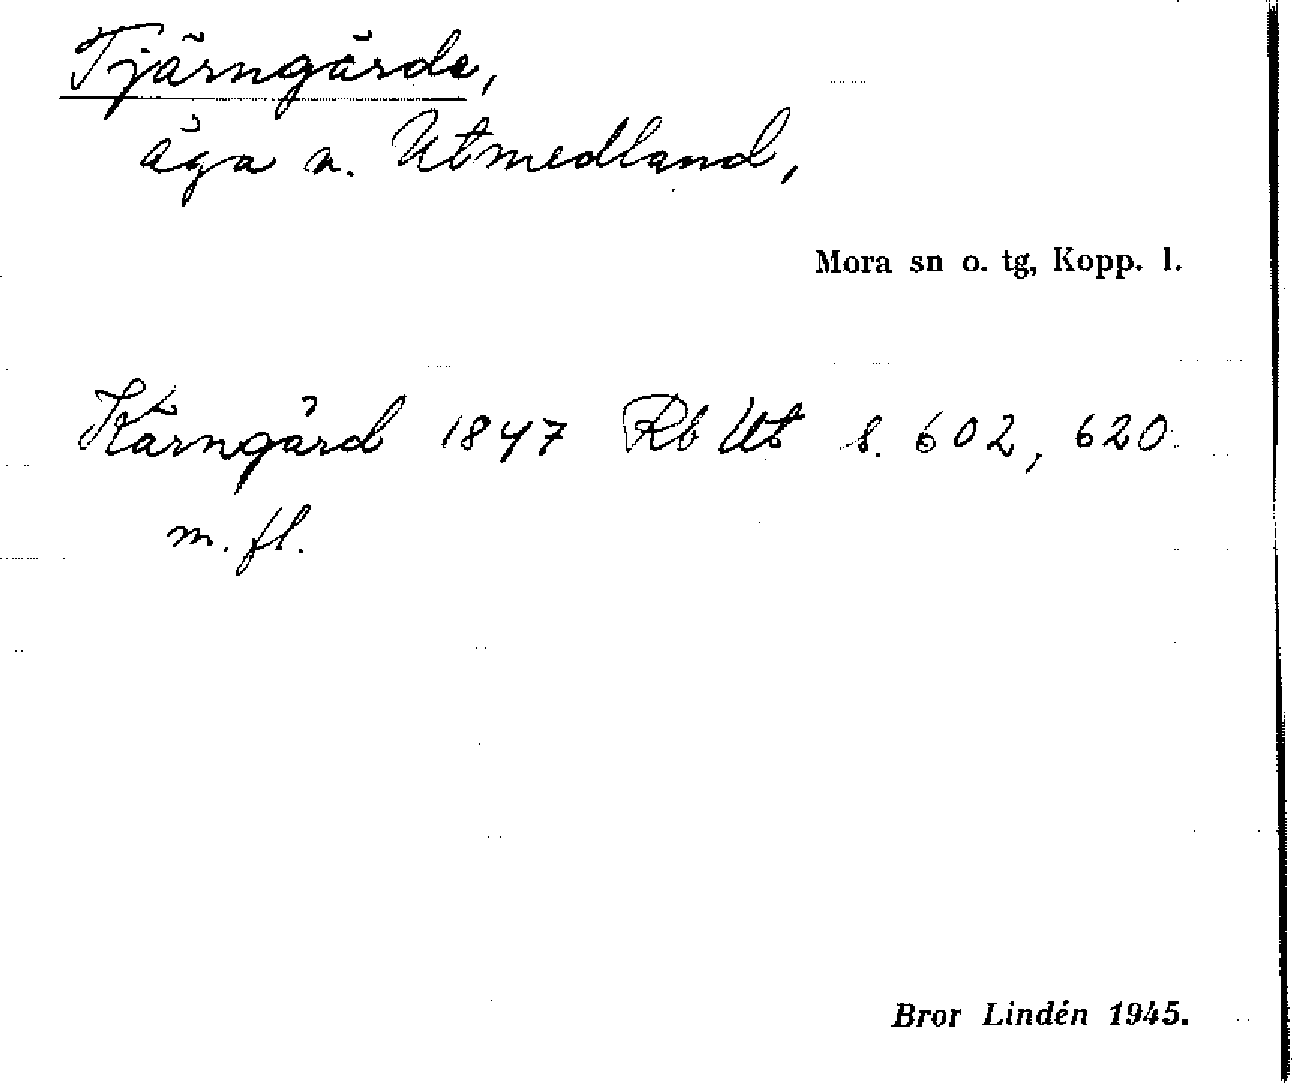 Tjärngärde,
äga n. Utmedland,
Mora sn o. tg, Kopp. l.
Kärngård 1847 Rb Ut s. 602, 620
m. fl.
Bror Lindén 1945.